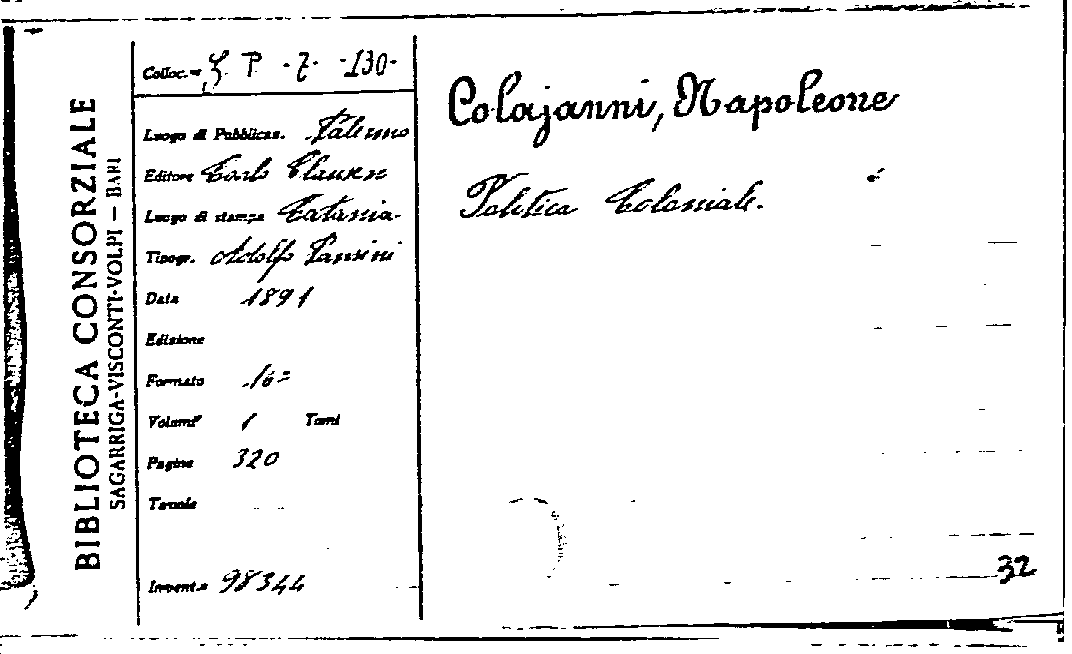 BIBLIOTECA CONSORZIALE
SAGARRIGA-VISCONTI-VOLPI — BARI
Colloc.ne P. -7- -130-
Luogo di Pubblicaz. Palermo
Editore Carlo Clausen
Luogo di stampa Catania.
Tipogr. Adolfo Pansini
Data 1891
Edizione
Formato 16=
Volumi 1 Tomi
Pagine 320
Tavole
Invent.o 98344
Colajanni, Napoleone
Politica Coloniale.
32